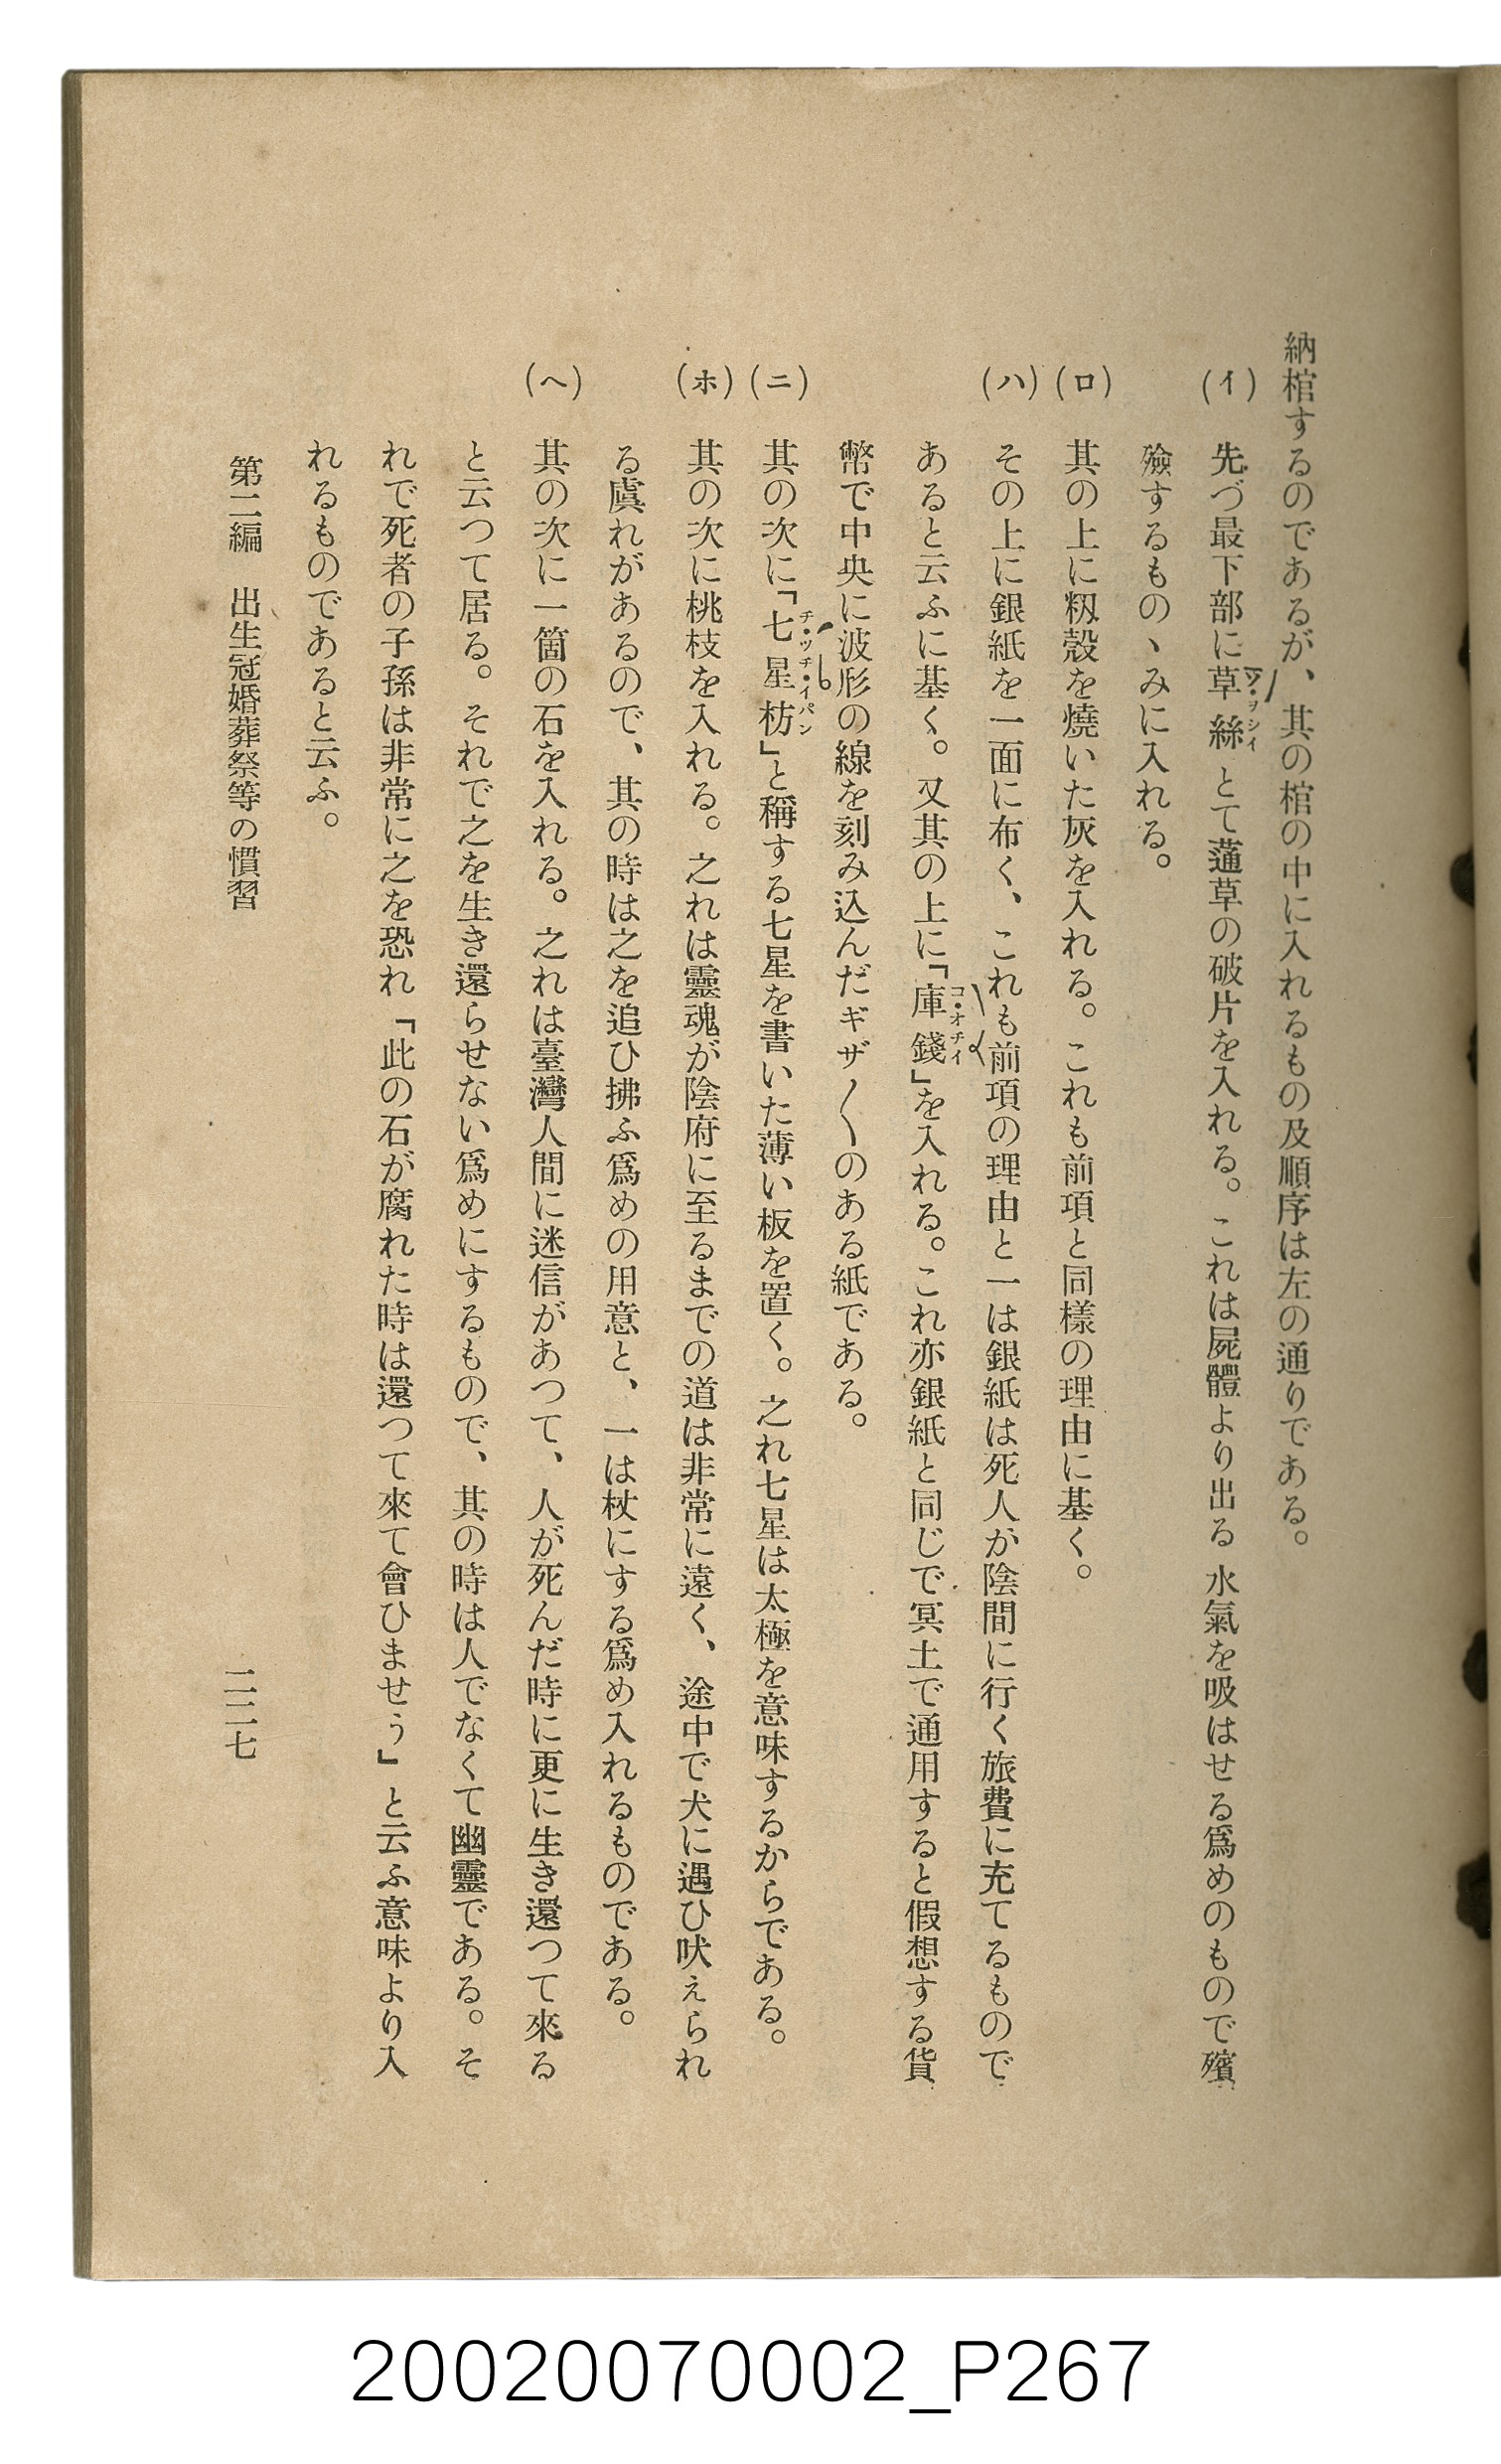 納棺するのであるが、其の棺の中に入れるもの及順序は左の通りである。
(イ) 先づ最下部に草絲とて蓪草の破片を入れる。これは屍體より出る水氣を吸はせる爲めのもので殯
殮するものゝみに入れる。
(ロ) 其の上に籾殻を燒いた灰を入れる。これも前項と同樣の理由に基く。
(ハ) その上に銀紙を一面に布く、これも前項の理由と一は銀紙は死人が陰間に行く旅費に充てるもので
あると云ふに基く。又其の上に「庫錢」を入れる。これ亦銀紙と同じで冥土で通用すると假想する貨
コ・オチイ
幣で中央に波形の線を刻み込んだギザ〱のある紙である。
(ニ) 其の次に「七星枋」と稱する七星を書いた薄い板を置く。之れ七星は太極を意味するからである。
チ・ッチ・イパン
(ホ) 其の次に桃枝を入れる。之れは靈魂が陰府に至るまでの道は非常に遠く、途中で犬に遇ひ吠えられ
る虞れがあるので、其の時は之を追ひ拂ふ爲めの用意と、一は杖にする爲め入れるものである。
(ヘ) 其の次に一箇の石を入れる。之れは臺灣人間に迷信があつて、人が死んだ時に更に生き還つて來る
と云つて居る。それで之を生き還らせない爲めにするもので、其の時は人でなくて幽靈である。そ
れで死者の子孫は非常に之を恐れ「此の石が腐れた時は還つて來て會ひませう」と云ふ意味より入
れるものであると云ふ。
第二編 出生冠婚葬祭等の慣習
二二七
20020070002_P267